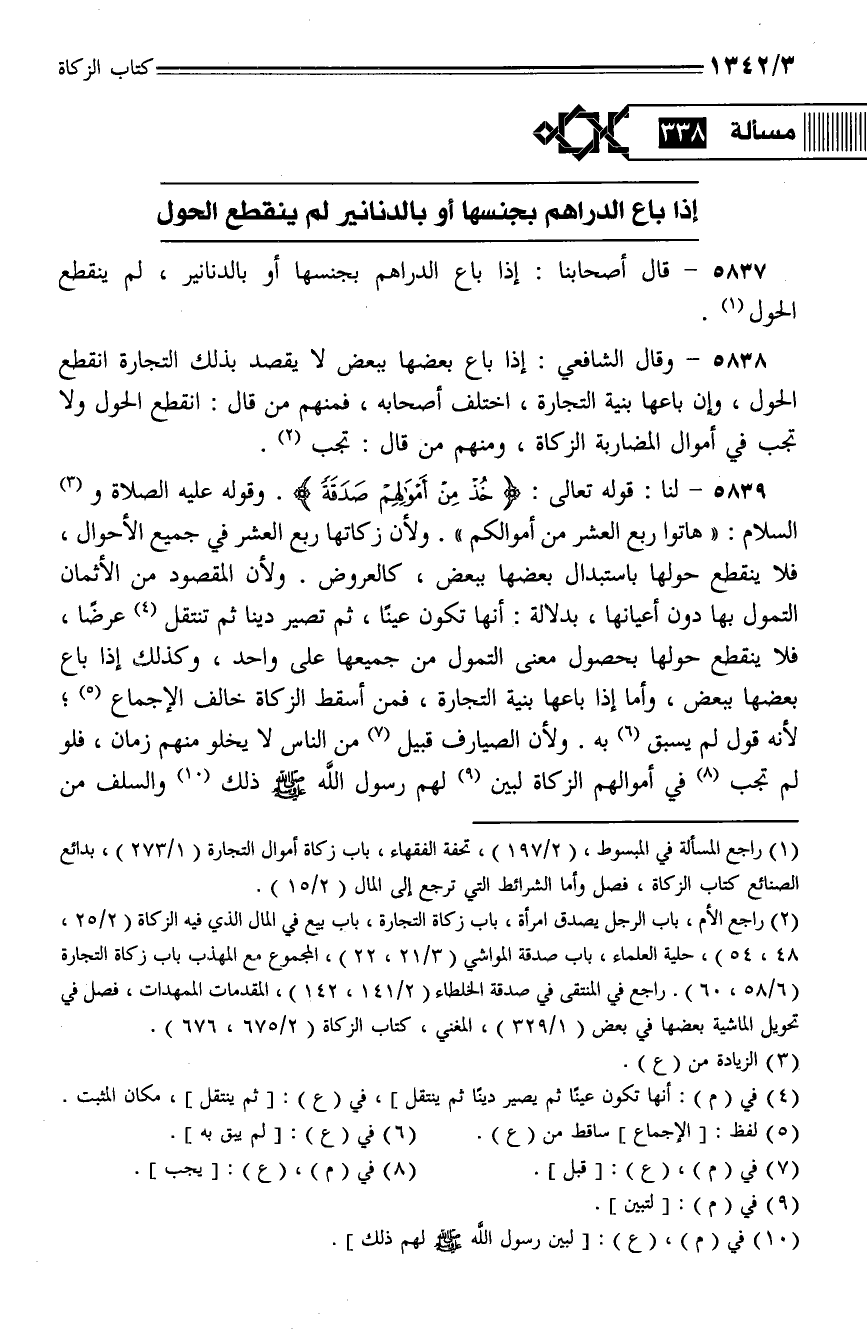 ١٣٤٢/٣ كتاب الزكاة
مسألة ٣٣٨
إذا باع الدراهم بجنسها أو بالدنانير لم ينقطع الحول
٥٨٣٧ - قال أصحابنا : إذا باع الدراهم بجنسها أو بالدنانير ، لم ينقطع
الحول (١) .
٥٨٣٨ - وقال الشافعي : إذا باع بعضها ببعض لا يقصد بذلك التجارة انقطع
الحول ، وإن باعها بنية التجارة ، اختلف أصحابه ، فمنهم من قال : انقطع الحول ولا
تجب في أموال المضاربة الزكاة ، ومنهم من قال : تجب (٢) .
٥٨٣٩ - لنا : قوله تعالى : ﴿ خُذْ مِنْ أَمْوَالِهِمْ صَدَقَةً ﴾ . وقوله عليه الصلاة و (٣)
السلام : « هاتوا ربع العشر من أموالكم » . ولأن زكاتها ربع العشر في جميع الأحوال ،
فلا ينقطع حولها باستبدال بعضها ببعض ، كالعروض . ولأن المقصود من الأثمان
التمول بها دون أعيانها ، بدلالة : أنها تكون عينًا ، ثم تصير دينا ثم تنتقل (٤) عرضًا ،
فلا ينقطع حولها بحصول معنى التمول من جميعها على واحد ، وكذلك إذا باع
بعضها ببعض ، وأما إذا باعها بنية التجارة ، فمن أسقط الزكاة خالف الإجماع (٥) ؛
لأنه قول لم يسبق (٦) به . ولأن الصيارف قبيل (٧) من الناس لا يخلو منهم زمان ، فلو
لم تجب (٨) في أموالهم الزكاة لبين (٩) لهم رسول اللَّه ﷺ ذلك (١٠) والسلف من
(١) راجع المسألة في المبسوط ، ( ١٩٧/٢ ) ، تحفة الفقهاء ، باب زكاة أموال التجارة ( ٢٧٣/١ ) ، بدائع
الصنائع كتاب الزكاة ، فصل وأما الشرائط التي ترجع إلى المال ( ١٥/٢ ) .
(٢) راجع الأم ، باب الرجل يصدق امرأة ، باب زكاة التجارة ، باب بيع في المال الذي فيه الزكاة ( ٢٥/٢ ،
٤٨ ، ٥٤ ) ، حلية العلماء ، باب صدقة المواشي ( ٢١/٣ ، ٢٢ ) ، المجموع مع المهذب باب زكاة التجارة
( ٥٨/٦ ، ٦٠ ) . راجع في المنتقى في صدقة الخلطاء ( ١٤١/٢ ، ١٤٢ ) ، المقدمات الممهدات ، فصل في
تحويل الماشية بعضها في بعض ( ٣٢٩/١ ) ، المغني ، كتاب الزكاة ( ٦٧٥/٢ ، ٦٧٦ ) .
(٣) الزيادة من ( ع ) .
(٤) في ( م ) : أنها تكون عينًا ثم يصير دينًا ثم ينتقل ] ، في ( ع ) : [ ثم ينتقل ] ، مكان المثبت .
(٥) لفظ : [ الإجماع ] ساقط من ( ع ) . (٦) في ( ع ) : [ لم يبق به ] .
(٧) في ( م ) ، ( ع ) : [ قبل ] . (٨) في ( م ) ، ( ع ) : [ يجب ] .
(٩) في ( م ) : [ لتبين ] .
(١٠) في ( م ) ، ( ع ) : [ لبين رسول اللَّه ﷺ لهم ذلك ] .